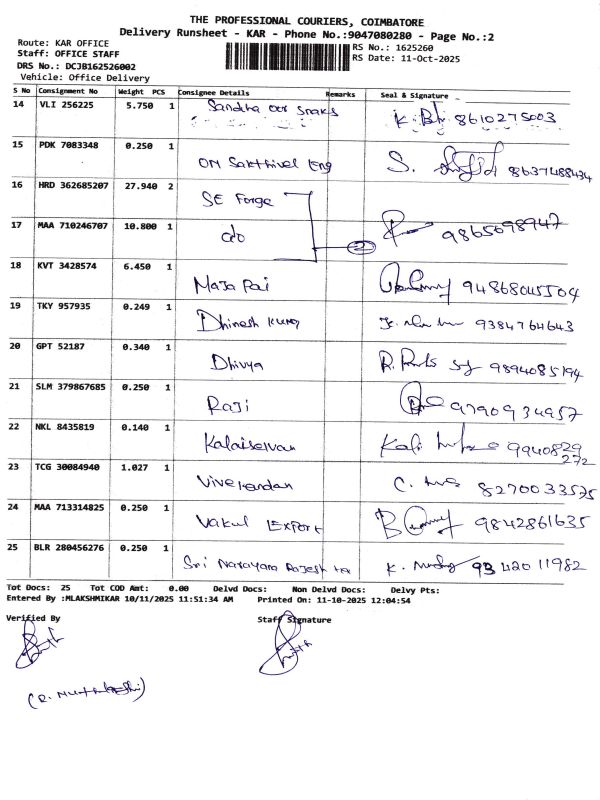 THE PROFESSIONAL COURIERS, COIMBATORE
Delivery Runsheet - KAR - Phone No.:9047080280 - Page No.:2
Route: KAR OFFICE
RS No.: 1625260
Staff: OFFICE STAFF
RS Date: 11-Oct-2025
DRS No.: DCJB162526002
Vehicle: Office Delivery
S No Consignment No Weight PCS Consignee Details Remarks Seal & Signature
14 VLI 256225 5.750 1 Sandha snaks 8610275003
15 PDK 7083348 0.250 1 OM Sakthivel Eng S. 8637488434
16 HRD 362685207 27.940 2 SE Forge
17 MAA 710246707 10.800 1 do 2 9865698947
18 KVT 3428574 6.450 1 Maja Pai 94868045504
19 TKY 957935 0.249 1 Dhinesh 9384764643
20 GPT 52187 0.340 1 Dhivya 9894085194
21 SLM 379867685 0.250 1 Raji 9790934957
22 NKL 8435819 0.140 1 Kalaiselvan Kali 9940829272
23 TCG 30084940 1.027 1 Vivekandan C. 8270033575
24 MAA 713314825 0.250 1 Vakul Export 9842861635
25 BLR 280456276 0.250 1 Sri Narayana Rajesh K. 9342011982
Tot Docs: 25 Tot COD Amt: 0.00 Delvd Docs: Non Delvd Docs: Delvy Pts:
Entered By :MLAKSHMIKAR 10/11/2025 11:51:34 AM Printed On: 11-10-2025 12:04:54
Verified By Staff Signature